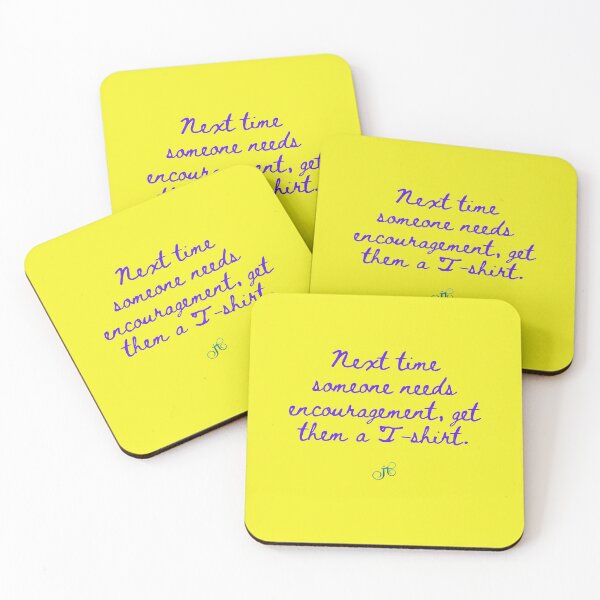 Next time
someone needs
encouragement, get
Next time
someone needs
encouragement, get
them a T-shirt.
Next time
someone needs
encouragement, get
them a T-shirt.
Next time
someone needs
encouragement, get
them a T-shirt.